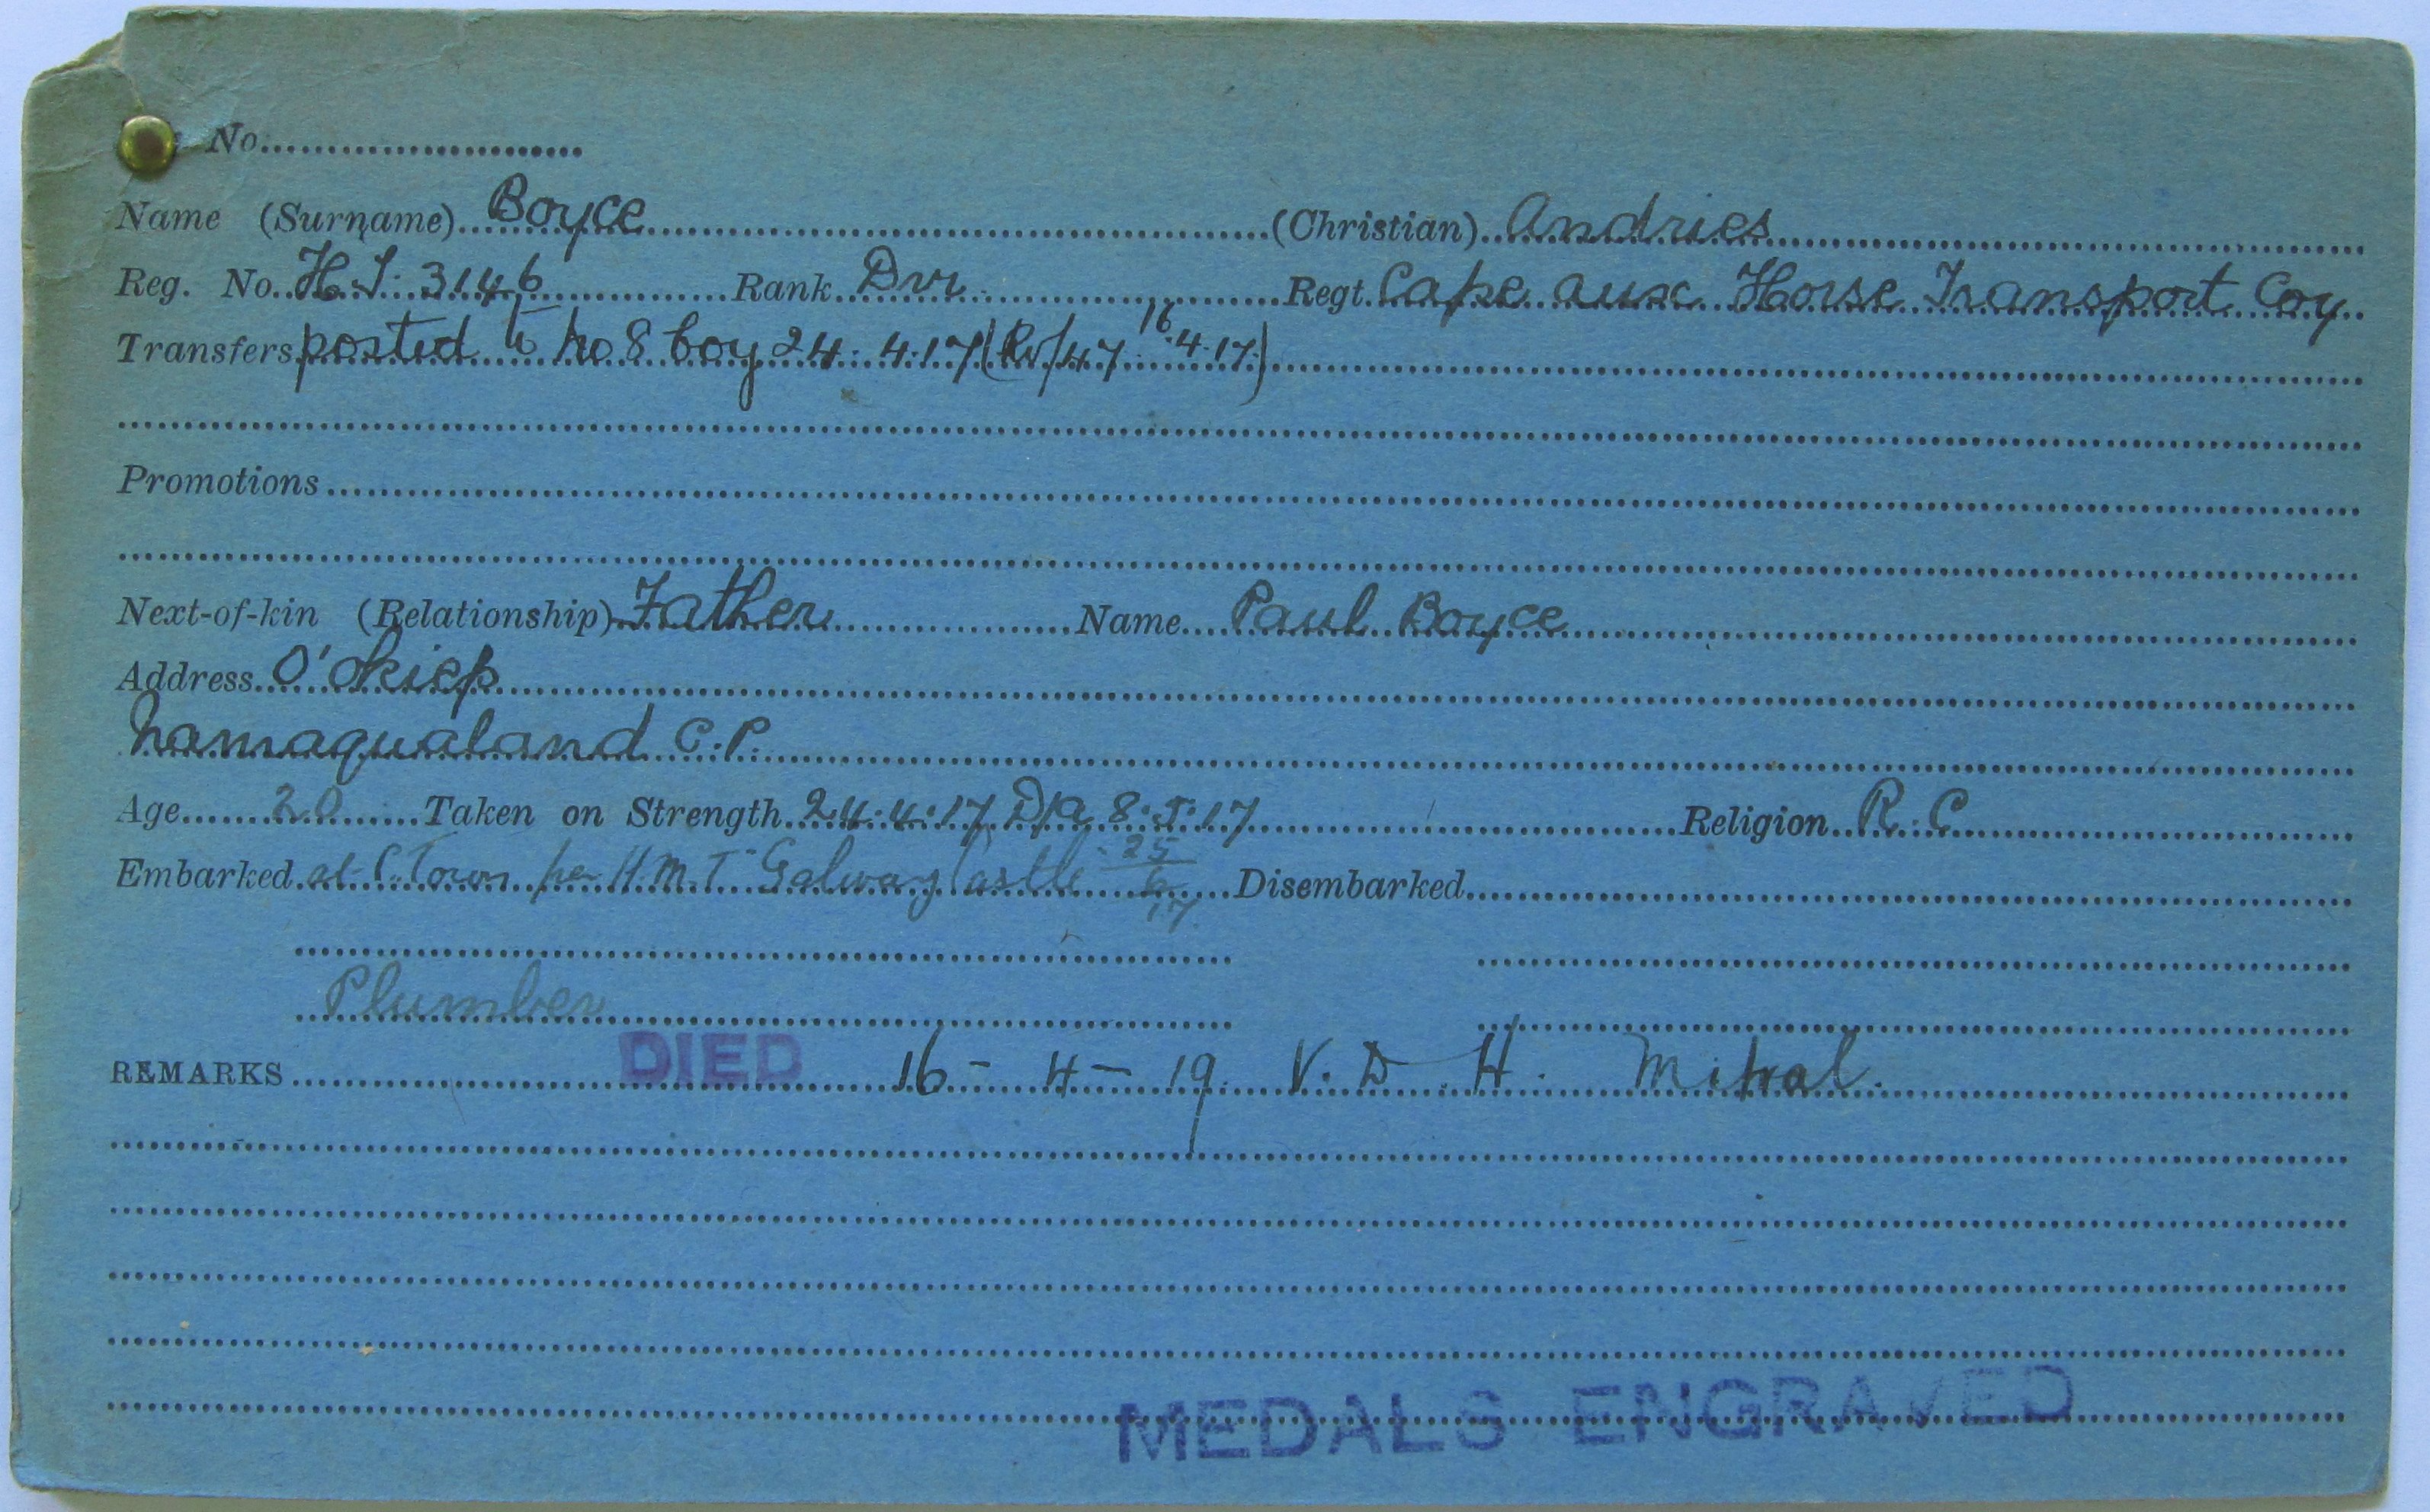 No........................
Name (Surname) Boyce (Christian) Andries
Reg. No. H.T. 3146 Rank Dvr Regt. Cape Aux Horse Transport Coy
Transfers posted to No 8 Coy 24.4.17 ( /47 16.4.17)
Promotions
Next-of-kin (Relationship) Father Name Paul Boyce
Address O'Okiep
Namaqualand C.P.
Age 20 Taken on Strength 24.4.17 D/A 8.5.17 Religion R.C
Embarked at C.Town per H.M.T. Galway Castle 25/6/17 Disembarked
Plumber
REMARKS DIED 16-4-19. V.D.H. Mitral.
MEDALS ENGRAVED